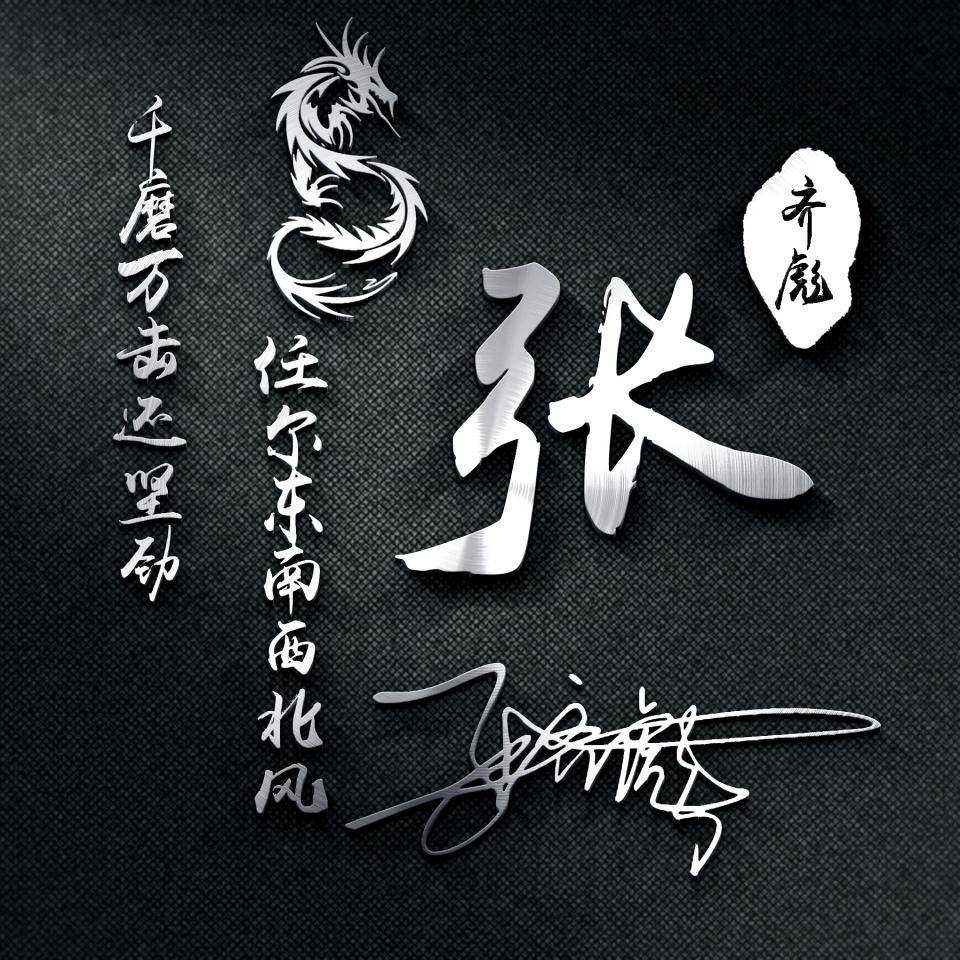 千磨万击还坚劲
任尔东南西北风
张
齐彪
张齐彪